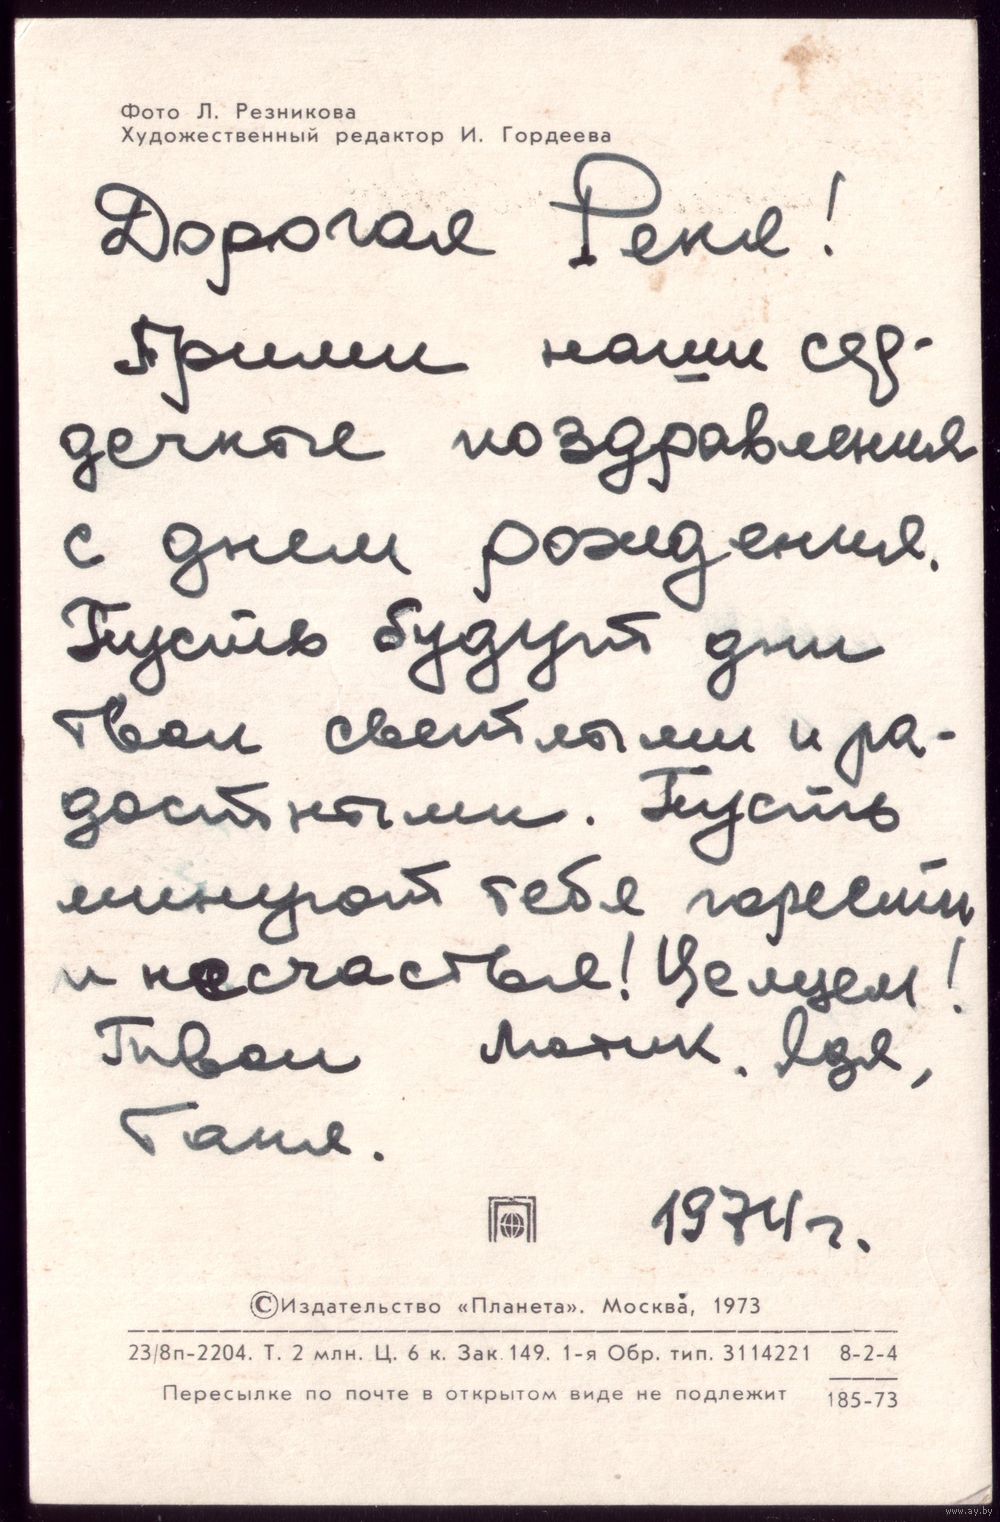 Фото Л. Резникова
Художественный редактор И. Гордеева
Дорогая Реня!
Прими наши сер-
дечные поздравления
с днем рождения.
Пусть будут дни
твои светлыми и ра-
достными. Пусть
минуют тебя горести
и несчастья! Целуем!
Твои Мотик, Ядя,
Таня.
1974 г.
©Издательство «Планета». Москва, 1973
23/8п-2204. Т. 2 млн. Ц. 6 к. Зак. 149. 1-я Обр. тип. 3114221 8-2-4
Пересылке по почте в открытом виде не подлежит 185-73
www.ay.by